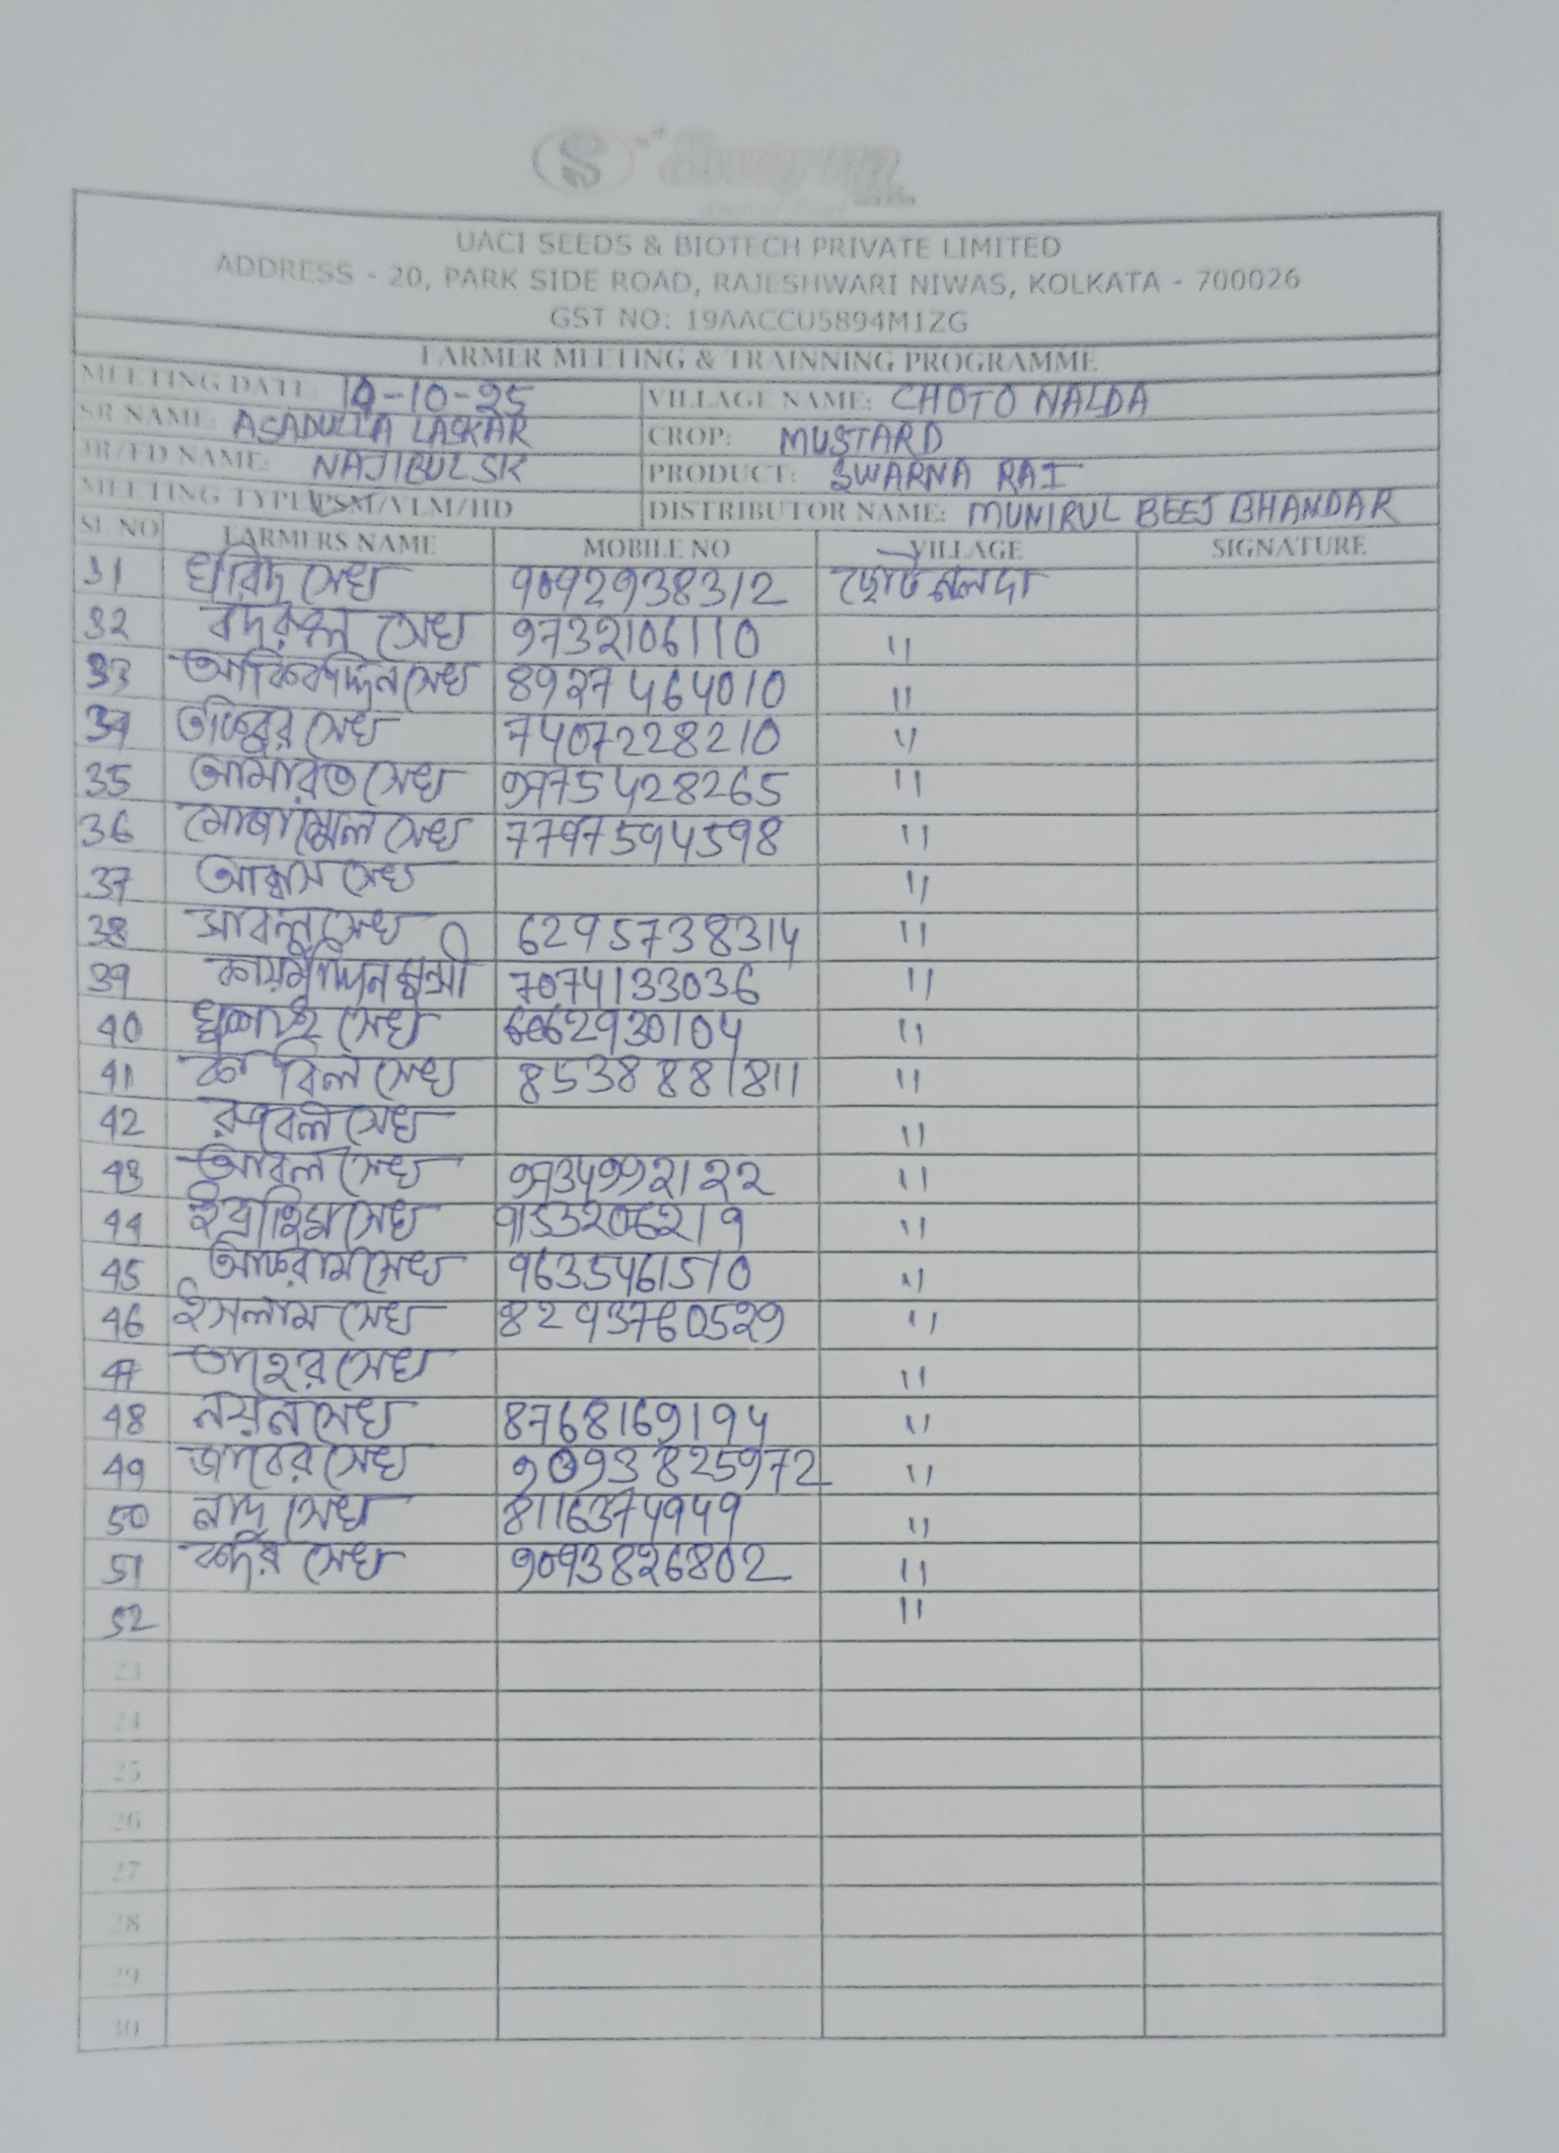 UACI SEEDS & BIOTECH PRIVATE LIMITED
ADDRESS - 20, PARK SIDE ROAD, RAJESHWARI NIWAS, KOLKATA - 700026
GST NO: 19AACCU5894M1ZG
FARMER MEETING & TRAINNING PROGRAMME
MEETING DATE: -10-25 VILLAGE NAME: CHOTO NALDA
SR NAME: ASADULLA LASKAR CROP: MUSTARD
JR/FD NAME: NAJIBUL SK PRODUCT: SWARNA RAI
MEETING TYPE: PSM/VLM/HD DISTRIBUTOR NAME: MUNIRUL BEEJ BHANDAR
SL NO FARMERS NAME MOBILE NO VILLAGE SIGNATURE
31 সেখ ছোট নলদা
32 বদরুল সেখ 9732106110 "
33 সেখ 8927464010 "
34 সেখ 7407228210 "
35 সেখ 9775428265 "
36 মোজাম্মেল সেখ 7797594598 "
37 আব্বাস সেখ "
38 সাবলু সেখ 6295738314 "
39 মুন্সী 7074133036 "
40 সেখ "
41 কাবিল সেখ 8538881811 "
42 রুবেল সেখ "
43 আবুল সেখ 9734992122 "
44 ইব্রাহিম সেখ 9153206219 "
45 আকরাম সেখ 9635461510 "
46 ইসলাম সেখ 8293760529 "
47 তাহের সেখ "
48 নয়ন সেখ 8768169194 "
49 জাবের সেখ 9093825972 "
50 নাদু সেখ 8116374949 "
51 কদর সেখ 9093826802 "
52 "
23
24
25
26
27
28
29
30